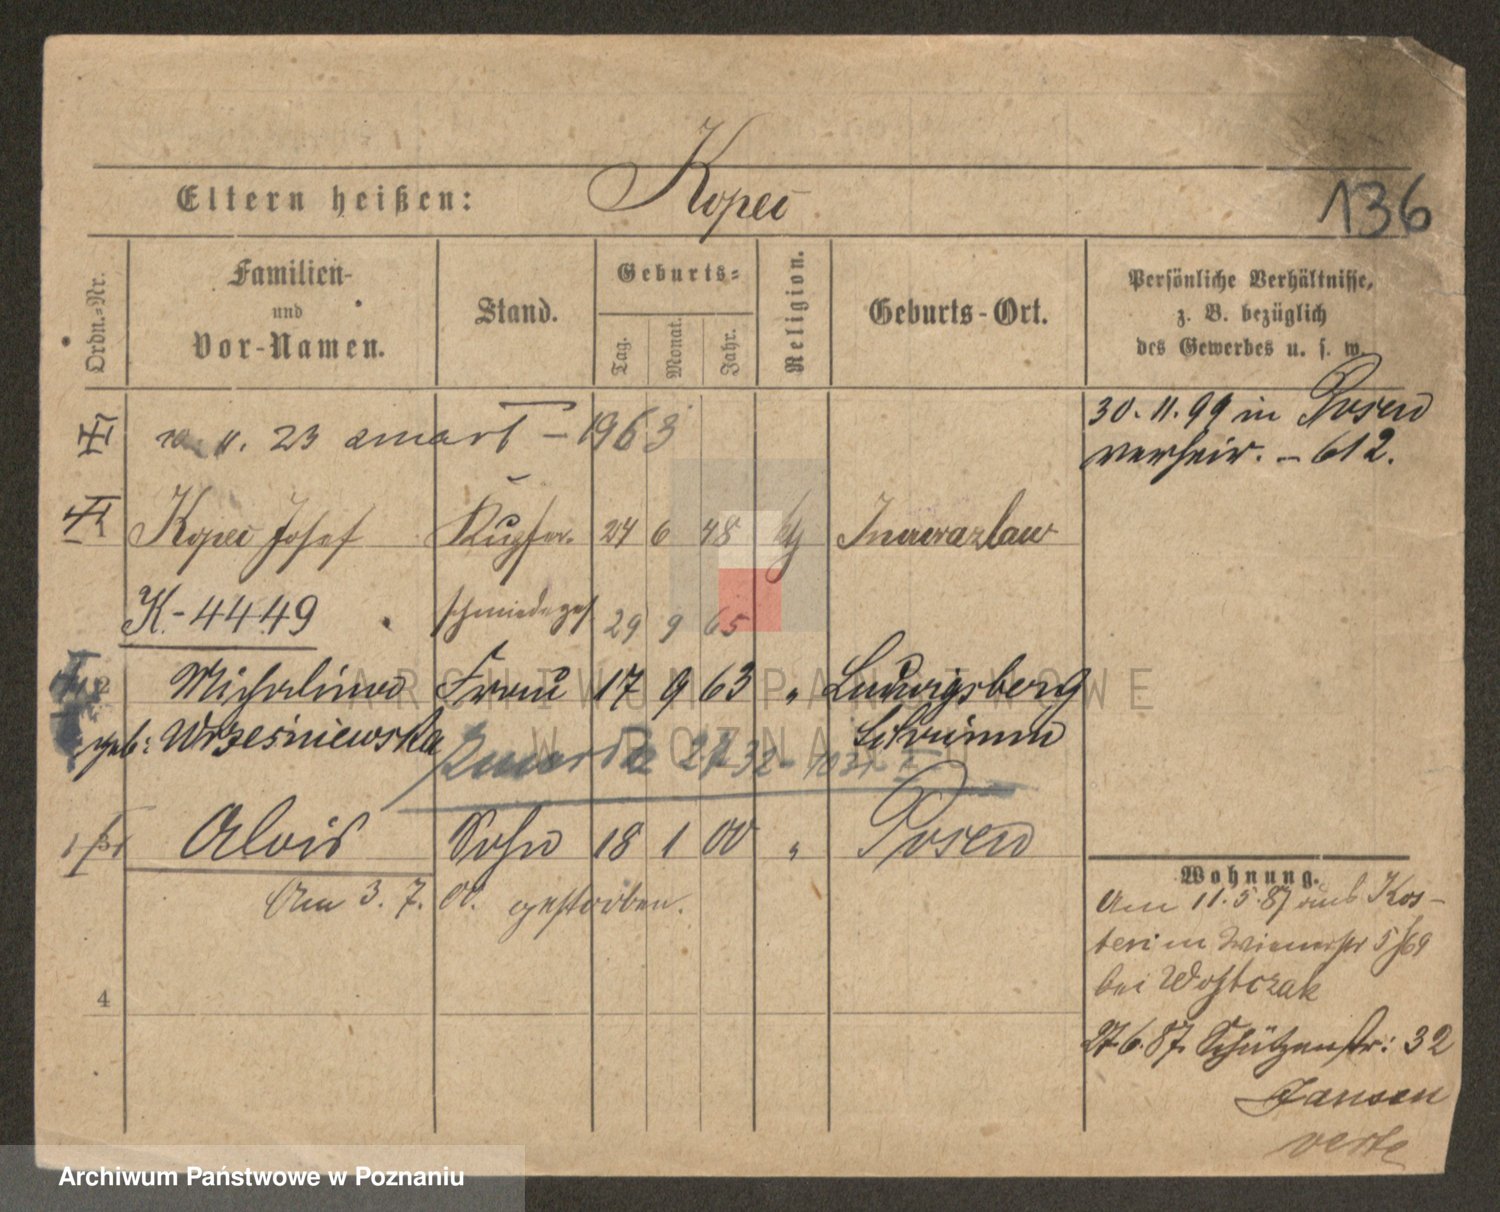 Eltern heißen: Kopeć
136
Ordn.-Nr.
Familien-
und
Vor-Namen.
Stand.
Geburts-
Tag.
Monat.
Jahr.
Religion.
Geburts-Ort.
Persönliche Verhältnisse,
z. B. bezüglich
des Gewerbes u. s. w.
30. 11. 99 in Posen
verheir. - 612.
11. 23 zmarł - 1963
Kopeć Josef Kupfer- 24 6 48 Inowrazlaw
K-4449 schmiedeges. 29 9 65
2 Michalina Frau 17 9 63 " Ludwigsberg
geb: Wrześniewska Schrimm
zmarła
3 Alois Sohn 18 1 00 " Posen
Am 3. 7. 00. gestorben.
4
Wohnung.
Am 11.5.87 aus Kos-
ten in Wienerstr 5/69
bei
27.6.87. Schützenstr: 32
Jansen
verte
ARCHIWUM PAŃSTWOWE
W POZNANIU
Archiwum Państwowe w Poznaniu